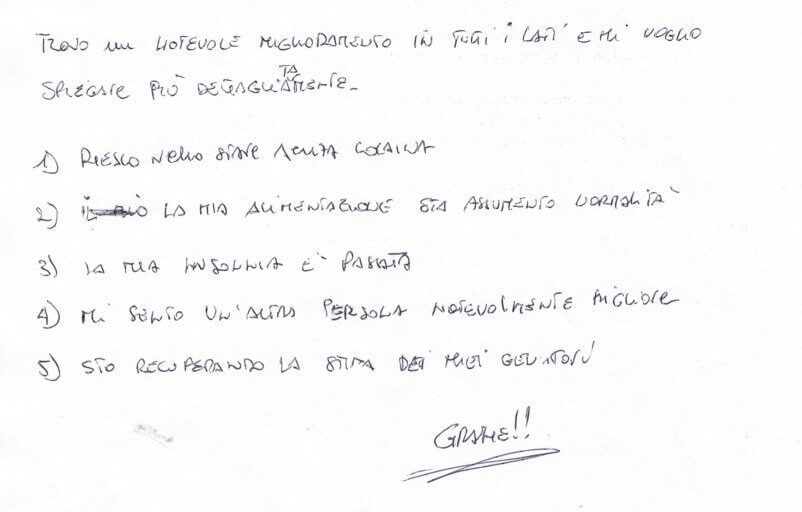 TROVO UN NOTEVOLE MIGLIORAMENTO IN TUTTI i LATI E MI VOGLIO
SPIEGARE PIÙ DETTAGLIATAMENTE.
1) RIESCO NELLO STARE SENZA COCAINA
2) LA MIA ALIMENTAZIONE STA ASSUMENTO NORMALITA'
3) LA MIA INSONNIA E' PASSATA
4) MI SENTO UN'ALTRA PERSONA NOTEVOLMENTE MIGLIORE
5) STO RECUPERANDO LA STIMA DEI MIEI GENITORI
GRAZIE!!